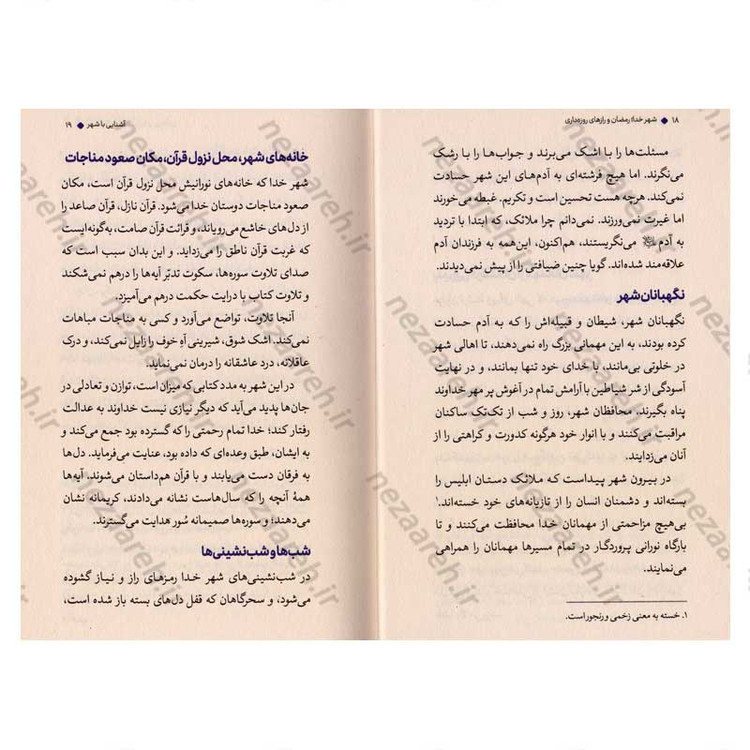 ۱۸ ◆ شهر خدا؛ رمضان و رازهای روزه‌داری
مسئلت‌ها را با اشک می‌برند و جواب‌ها را با رشک
می‌نگرند. اما هیچ فرشته‌ای به آدم‌های این شهر حسادت
نمی‌کند. هرچه هست تحسین است و تکریم. غبطه می‌خورند
اما غیرت نمی‌ورزند. نمی‌دانم چرا ملائک، که ابتدا با تردید
به آدم می‌نگریستند، هم‌اکنون، این‌همه به فرزندان آدم
علاقه‌مند شده‌اند. گویا چنین ضیافتی را از پیش نمی‌دیدند.
نگهبانان شهر
نگهبانان شهر، شیطان و قبیله‌اش را که به آدم حسادت
کرده بودند، به این مهمانی بزرگ راه نمی‌دهند، تا اهالی شهر
در خلوتی بی‌مانند، با خدای خود تنها بمانند، و در نهایت
آسودگی از شر شیاطین با آرامش تمام در آغوش پر مهر خداوند
پناه بگیرند. محافظان شهر، روز و شب از تک‌تک ساکنان
مراقبت می‌کنند و با انوار خود هرگونه کدورت و کراهتی را از
آنان می‌زدایند.
در بیرون شهر پیداست که ملائک دستان ابلیس را
بسته‌اند و دشمنان انسان را از تازیانه‌های خود خسته‌اند.۱
بی‌هیچ مزاحمتی از مهمانان خدا محافظت می‌کنند و تا
بارگاه نورانی پروردگار در تمام مسیرها مهمانان را همراهی
می‌نمایند.
۱. خسته به معنی زخمی و رنجور است.
آشنایی با شهر ◆ ۱۹
خانه‌های شهر، محل نزول قرآن، مکان صعود مناجات
شهر خدا که خانه‌های نورانیش محل نزول قرآن است، مکان
صعود مناجات دوستان خدا می‌شود. قرآن نازل، قرآن صاعد را
از دل‌های خاشع می‌رویاند، و قرائت قرآن صامت، به‌گونه‌ایست
که غربت قرآن ناطق را می‌زداید. و این بدان سبب است که
صدای تلاوت سوره‌ها، سکوت تدبّر آیه‌ها را درهم نمی‌شکند
و تلاوت کتاب با درایت حکمت درهم می‌آمیزد.
آنجا تلاوت، تواضع می‌آورد و کسی به مناجات مباهات
نمی‌کند. اشک شوق، شیرینی آهِ خوف را زایل نمی‌کند، و درک
عاقلانه، درد عاشقانه را درمان نمی‌نماید.
در این شهر به مدد کتابی که میزان است، توازن و تعادلی در
جان‌ها پدید می‌آید که دیگر نیازی نیست خداوند به عدالت
رفتار کند؛ خدا تمام رحمتی را که گسترده بود جمع می‌کند و
به ایشان، طبق وعده‌ای که داده بود، عنایت می‌فرماید. دل‌ها
به فرقان دست می‌یابند و با قرآن هم‌داستان می‌شوند. آیه‌ها
همهٔ آنچه را که سال‌هاست نشانه می‌دادند، کریمانه نشان
می‌دهند؛ و سوره‌ها صمیمانه سُور هدایت می‌گسترند.
شب‌ها و شب‌نشینی‌ها
در شب‌نشینی‌های شهر خدا رمزهای راز و نیاز گشوده
می‌شود، و سحرگاهان که قفل دل‌های بسته باز شده است،
nezaareh.ir
nezaareh.ir
nezaareh.ir
nezaareh.ir
nezaareh.ir
nezaareh.ir